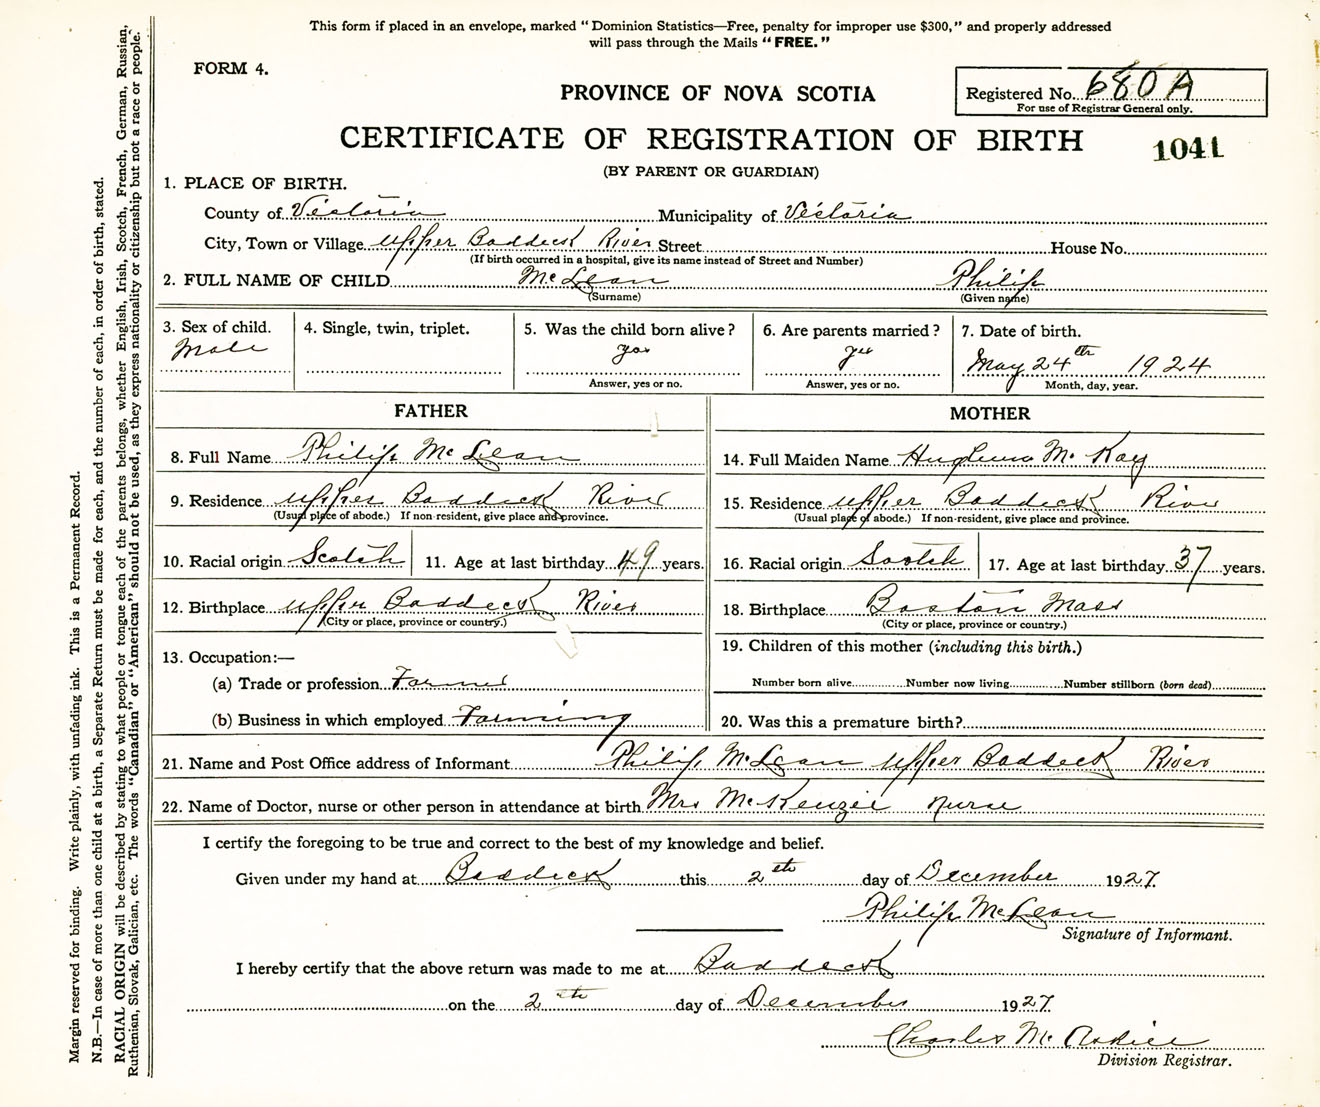 This form if placed in an envelope, marked “Dominion Statistics—Free, penalty for improper use $300,” and properly addressed
will pass through the Mails “FREE.”
FORM 4.
PROVINCE OF NOVA SCOTIA
Registered No. 680 A
For use of Registrar General only.
CERTIFICATE OF REGISTRATION OF BIRTH
1041
(BY PARENT OR GUARDIAN)
1. PLACE OF BIRTH.
County of Victoria Municipality of Victoria
City, Town or Village Upper Baddeck River Street House No.
(If birth occurred in a hospital, give its name instead of Street and Number)
2. FULL NAME OF CHILD McLean Philip
(Surname) (Given name)
3. Sex of child. 4. Single, twin, triplet. 5. Was the child born alive? 6. Are parents married? 7. Date of birth.
Male yes yes May 24th 1924
Answer, yes or no. Answer, yes or no. Month, day, year.
FATHER MOTHER
8. Full Name Philip McLean 14. Full Maiden Name McKay
9. Residence Upper Baddeck River 15. Residence Upper Baddeck River
(Usual place of abode.) If non-resident, give place and province. (Usual place of abode.) If non-resident, give place and province.
10. Racial origin Scotch 11. Age at last birthday 49 years. 16. Racial origin Scotch 17. Age at last birthday 37 years.
12. Birthplace Upper Baddeck River 18. Birthplace Boston Mass
(City or place, province or country.) (City or place, province or country.)
13. Occupation:— 19. Children of this mother (including this birth.)
(a) Trade or profession Farmer Number born alive Number now living Number stillborn (born dead)
(b) Business in which employed Farming 20. Was this a premature birth?
21. Name and Post Office address of Informant Philip McLean Upper Baddeck River
22. Name of Doctor, nurse or other person in attendance at birth Mrs McKenzie Nurse
I certify the foregoing to be true and correct to the best of my knowledge and belief.
Given under my hand at Baddeck this 2th day of December 1927.
Philip McLean
Signature of Informant.
I hereby certify that the above return was made to me at Baddeck
on the 2th day of December 1927.
Charles
Division Registrar.
Margin reserved for binding. Write plainly, with unfading ink. This is a Permanent Record.
N.B.—In case of more than one child at a birth, a Separate Return must be made for each, and the number of each, in order of birth, stated.
RACIAL ORIGIN will be described by stating to what people or tongue each of the parents belongs, whether English, Irish, Scotch, French, German, Russian,
Ruthenian, Slovak, Galician, etc. The words “Canadian” or “American” should not be used, as they express nationality or citizenship but not a race or people.